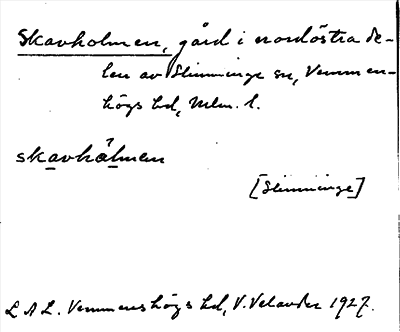 Skavholmen, gård i nordöstra de-
len av Slimminge sn, Vemmen-
högs hd, Mlm. l.
skavhålmen
[Slimminge]
L A L. Vemmenshögs hd, V. Velander 1927.